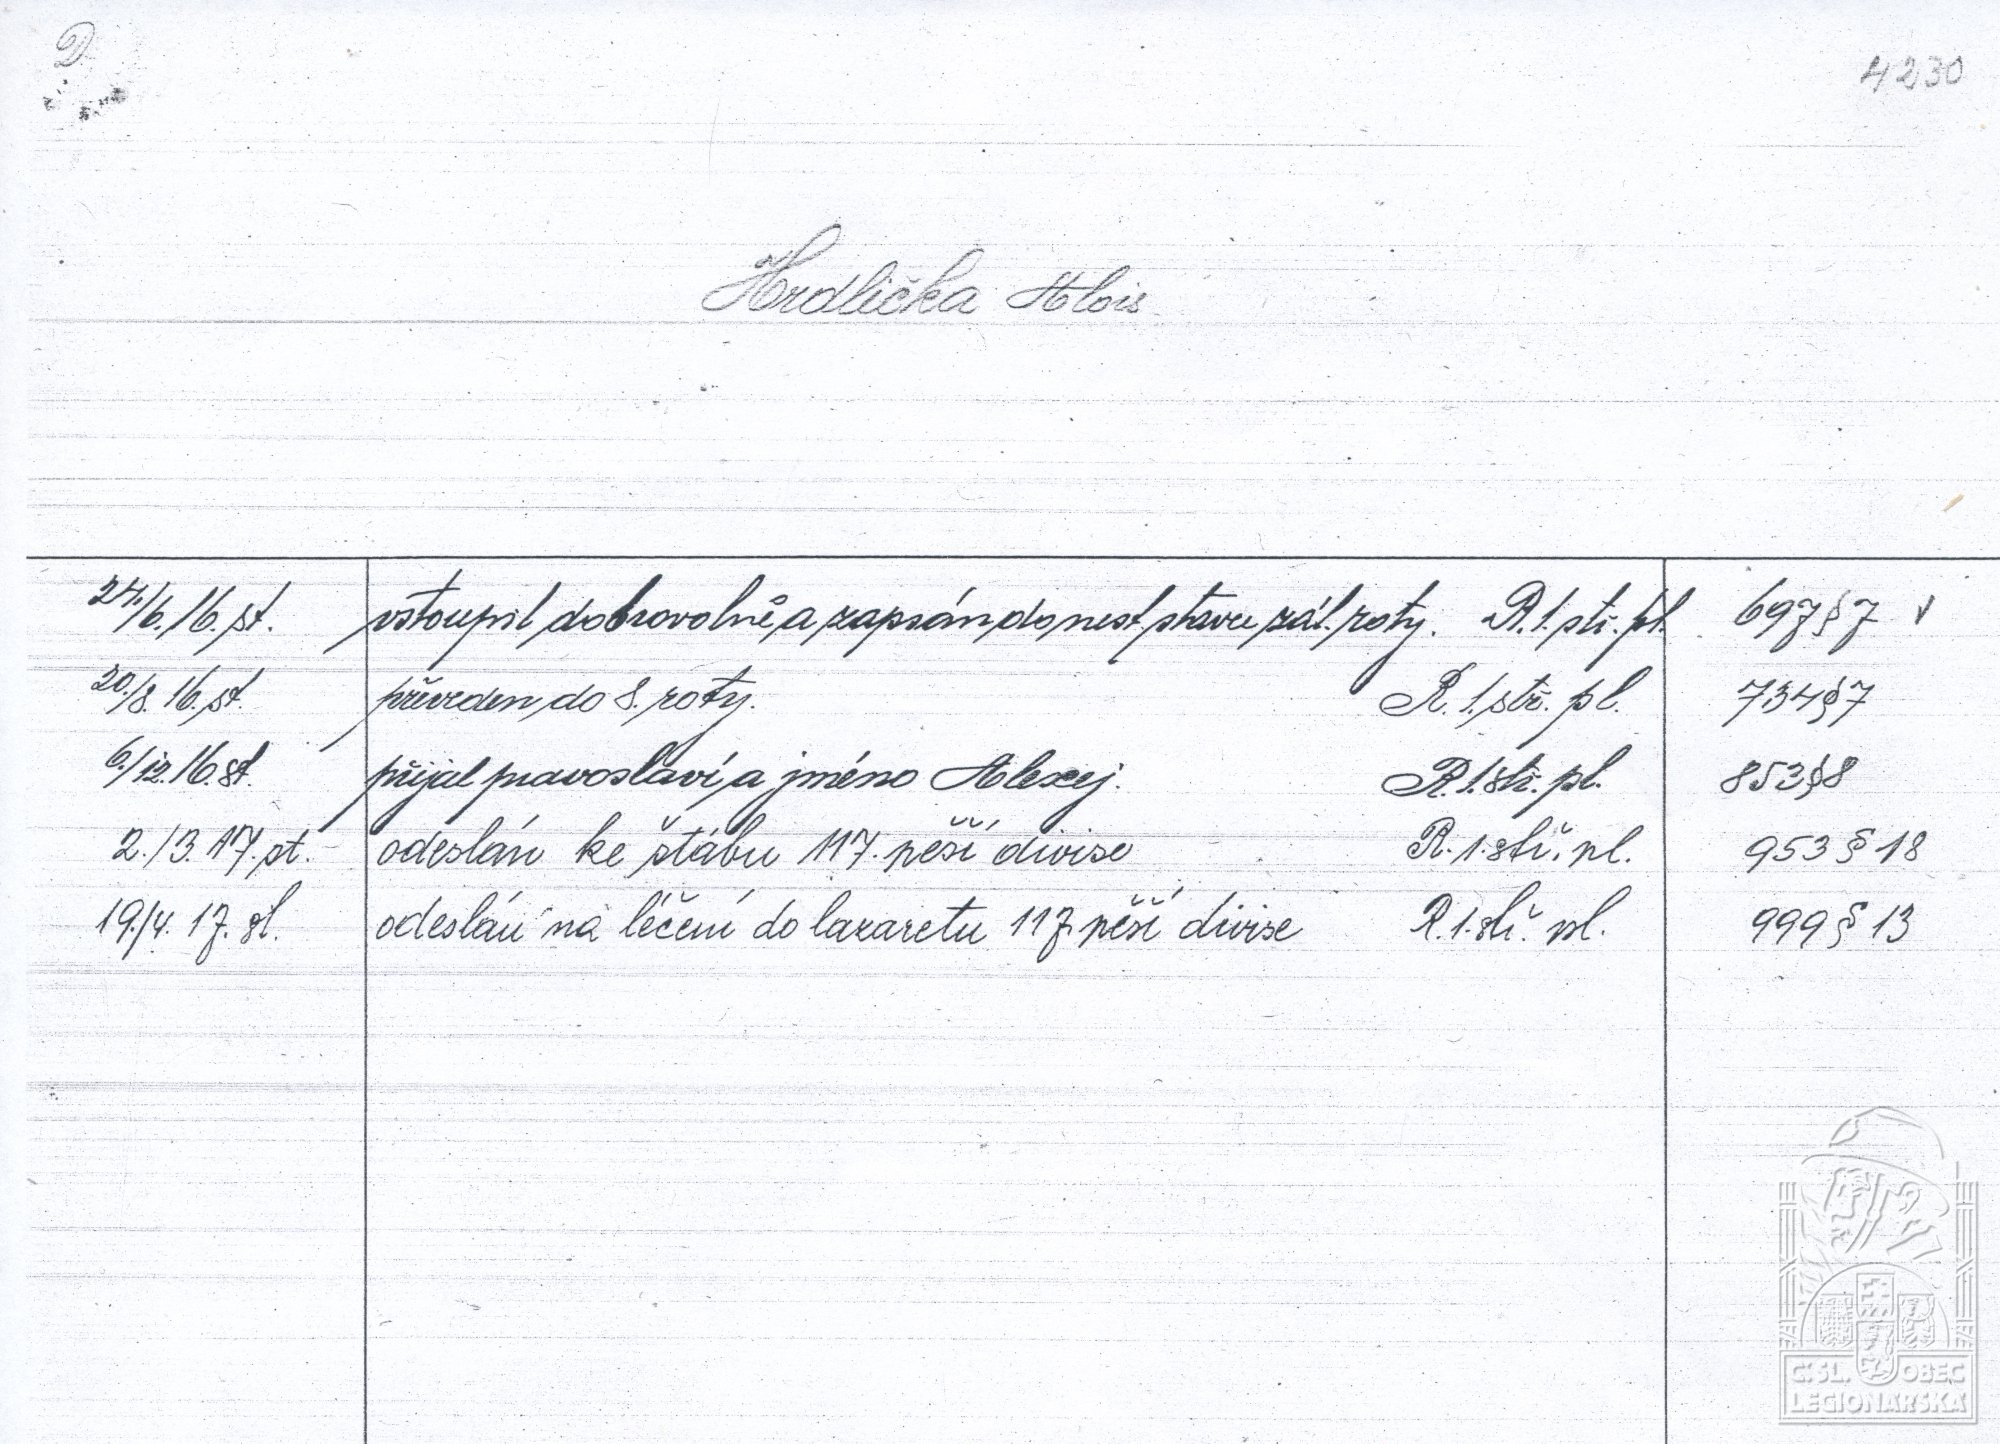 D
4230
Hrdlička Alois
24./6. 16. st. vstoupil dobrovolně a zapsán do nest. stavu zál. roty. R. 1. stř. pl. 697 § 7
20./8. 16. st. převeden do 8. roty. R. 1. stř. pl. 734 § 7
6./12. 16. st. přijal pravoslaví a jméno Alexej. R. 1. stř. pl. 853 § 8
2./3. 17. st. odeslán ke štábu 117. pěší divise R. 1. stř. pl. 953 § 18
19./4. 17. sl. odeslán na léčení do lazaretu 117 pěší divise R. 1. stř. pl. 999 § 13
Č. SL. OBEC
LEGIONÁŘSKÁ